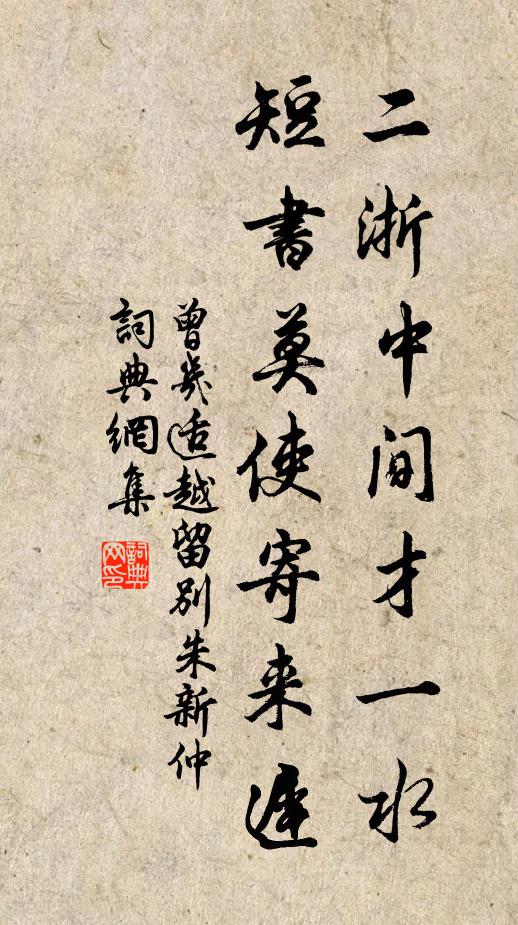 二浙中间才一水
短書莫使寄来遲
曾幾适越留别朱新仲
詞典網集
詞典網印